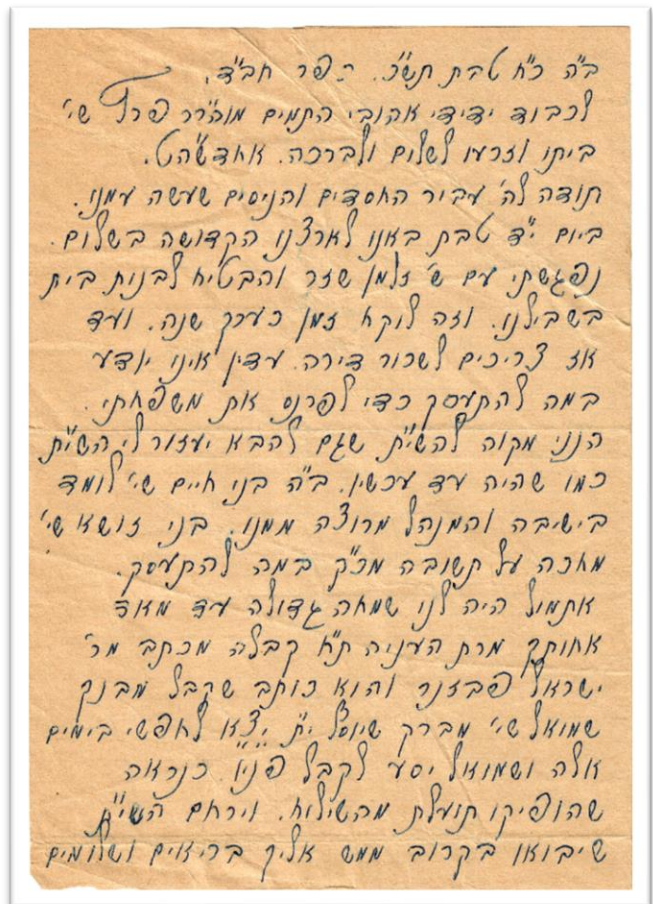 ב"ה כ"ח טבת תש"כ. כפר חב"ד.
לכבוד ידידי אהובי התמים מוה"ר פרץ שי'
ביתו וזרעו לשלום ולברכה. אחדשה"ט.
תודה לה' עביר החסדים והניסים שעשה עמנו.
ביום י"ד טבת באנו לארצנו הקדושה בשלום.
נפגשתי עם ש' זלמן שזר והבטיח לבנות בית
בשבילנו. וזה לוקח זמן כערך שנה. ועד
אז צריכים לשכור דירה. עדין איני יודע
במה להתעסק כדי לפרנס את משפחתי.
הנני מקוה להשי"ת שגם להבא יעזור לי השי"ת
כמו שהיה עד עכשיו. ב"ה בני חיים שי' לומד
בישיבה והמנהל מרוצה ממנו. בני זושא שי'
מחכה על תשובה מכ"ק במה להתעסק.
אתמול היה לנו שמחה גדולה עד מאד
אחותך מרת העניה תי' קבלה מכתב מר'
ישראל פבזנר והוא כותב שקבל מבנק
שמואל שי' מברק שיוסל ית' יצא לחפשי בימים
אלה ושמואל יסע לקבל פניו. כנראה
שהופיקו תועלת מהשילוח. וירחם השי"ת
שיבואו בקרוב ממש אליך בריאים ושלומים